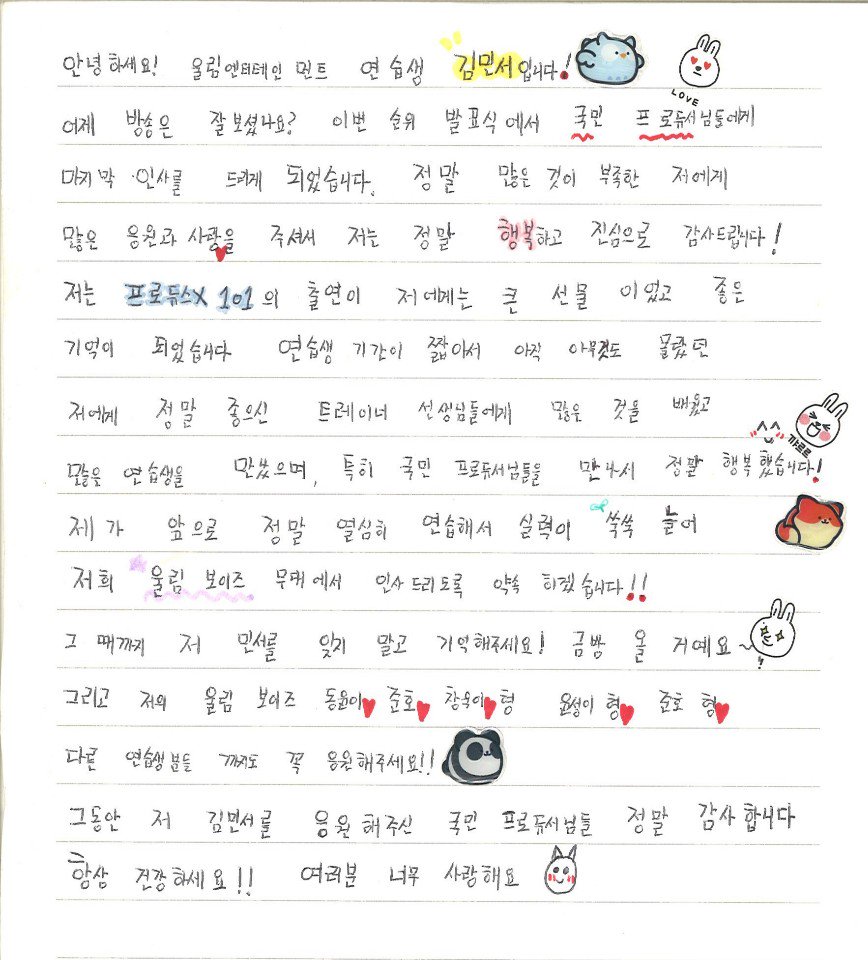 안녕하세요! 울림엔터테인먼트 연습생 김민서입니다!
LOVE
어제 방송은 잘 보셨나요? 이번 순위 발표식에서 국민 프로듀서님들에게
마지막 인사를 드리게 되었습니다. 정말 많은 것이 부족한 저에게
많은 응원과 사랑을 주셔서 저는 정말 행복하고 진심으로 감사드립니다!
저는 프로듀스X 101의 출연이 저에게는 큰 선물이었고 좋은
기억이 되었습니다 연습생 기간이 짧아서 아직 아무것도 몰랐던
저에게 정말 좋으신 트레이너 선생님들에게 많은 것을 배웠고
꺄르르
많은 연습생을 만났으며, 특히 국민 프로듀서님들을 만나서 정말 행복했습니다!
제가 앞으로 정말 열심히 연습해서 실력이 쑥쑥 늘어
저희 울림 보이즈 무대에서 인사드리도록 약속 하겠습니다!!
그 때까지 저 민서를 잊지 말고 기억해주세요! 금방 올 거예요~
그리고 저의 울림 보이즈 동윤이 준호 창욱이형 윤성이 형 준호 형
다른 연습생분들 까지도 꼭 응원해주세요!!
그동안 저 김민서를 응원해주신 국민 프로듀서님들 정말 감사합니다
항상 건강하세요!! 여러분 너무 사랑해요